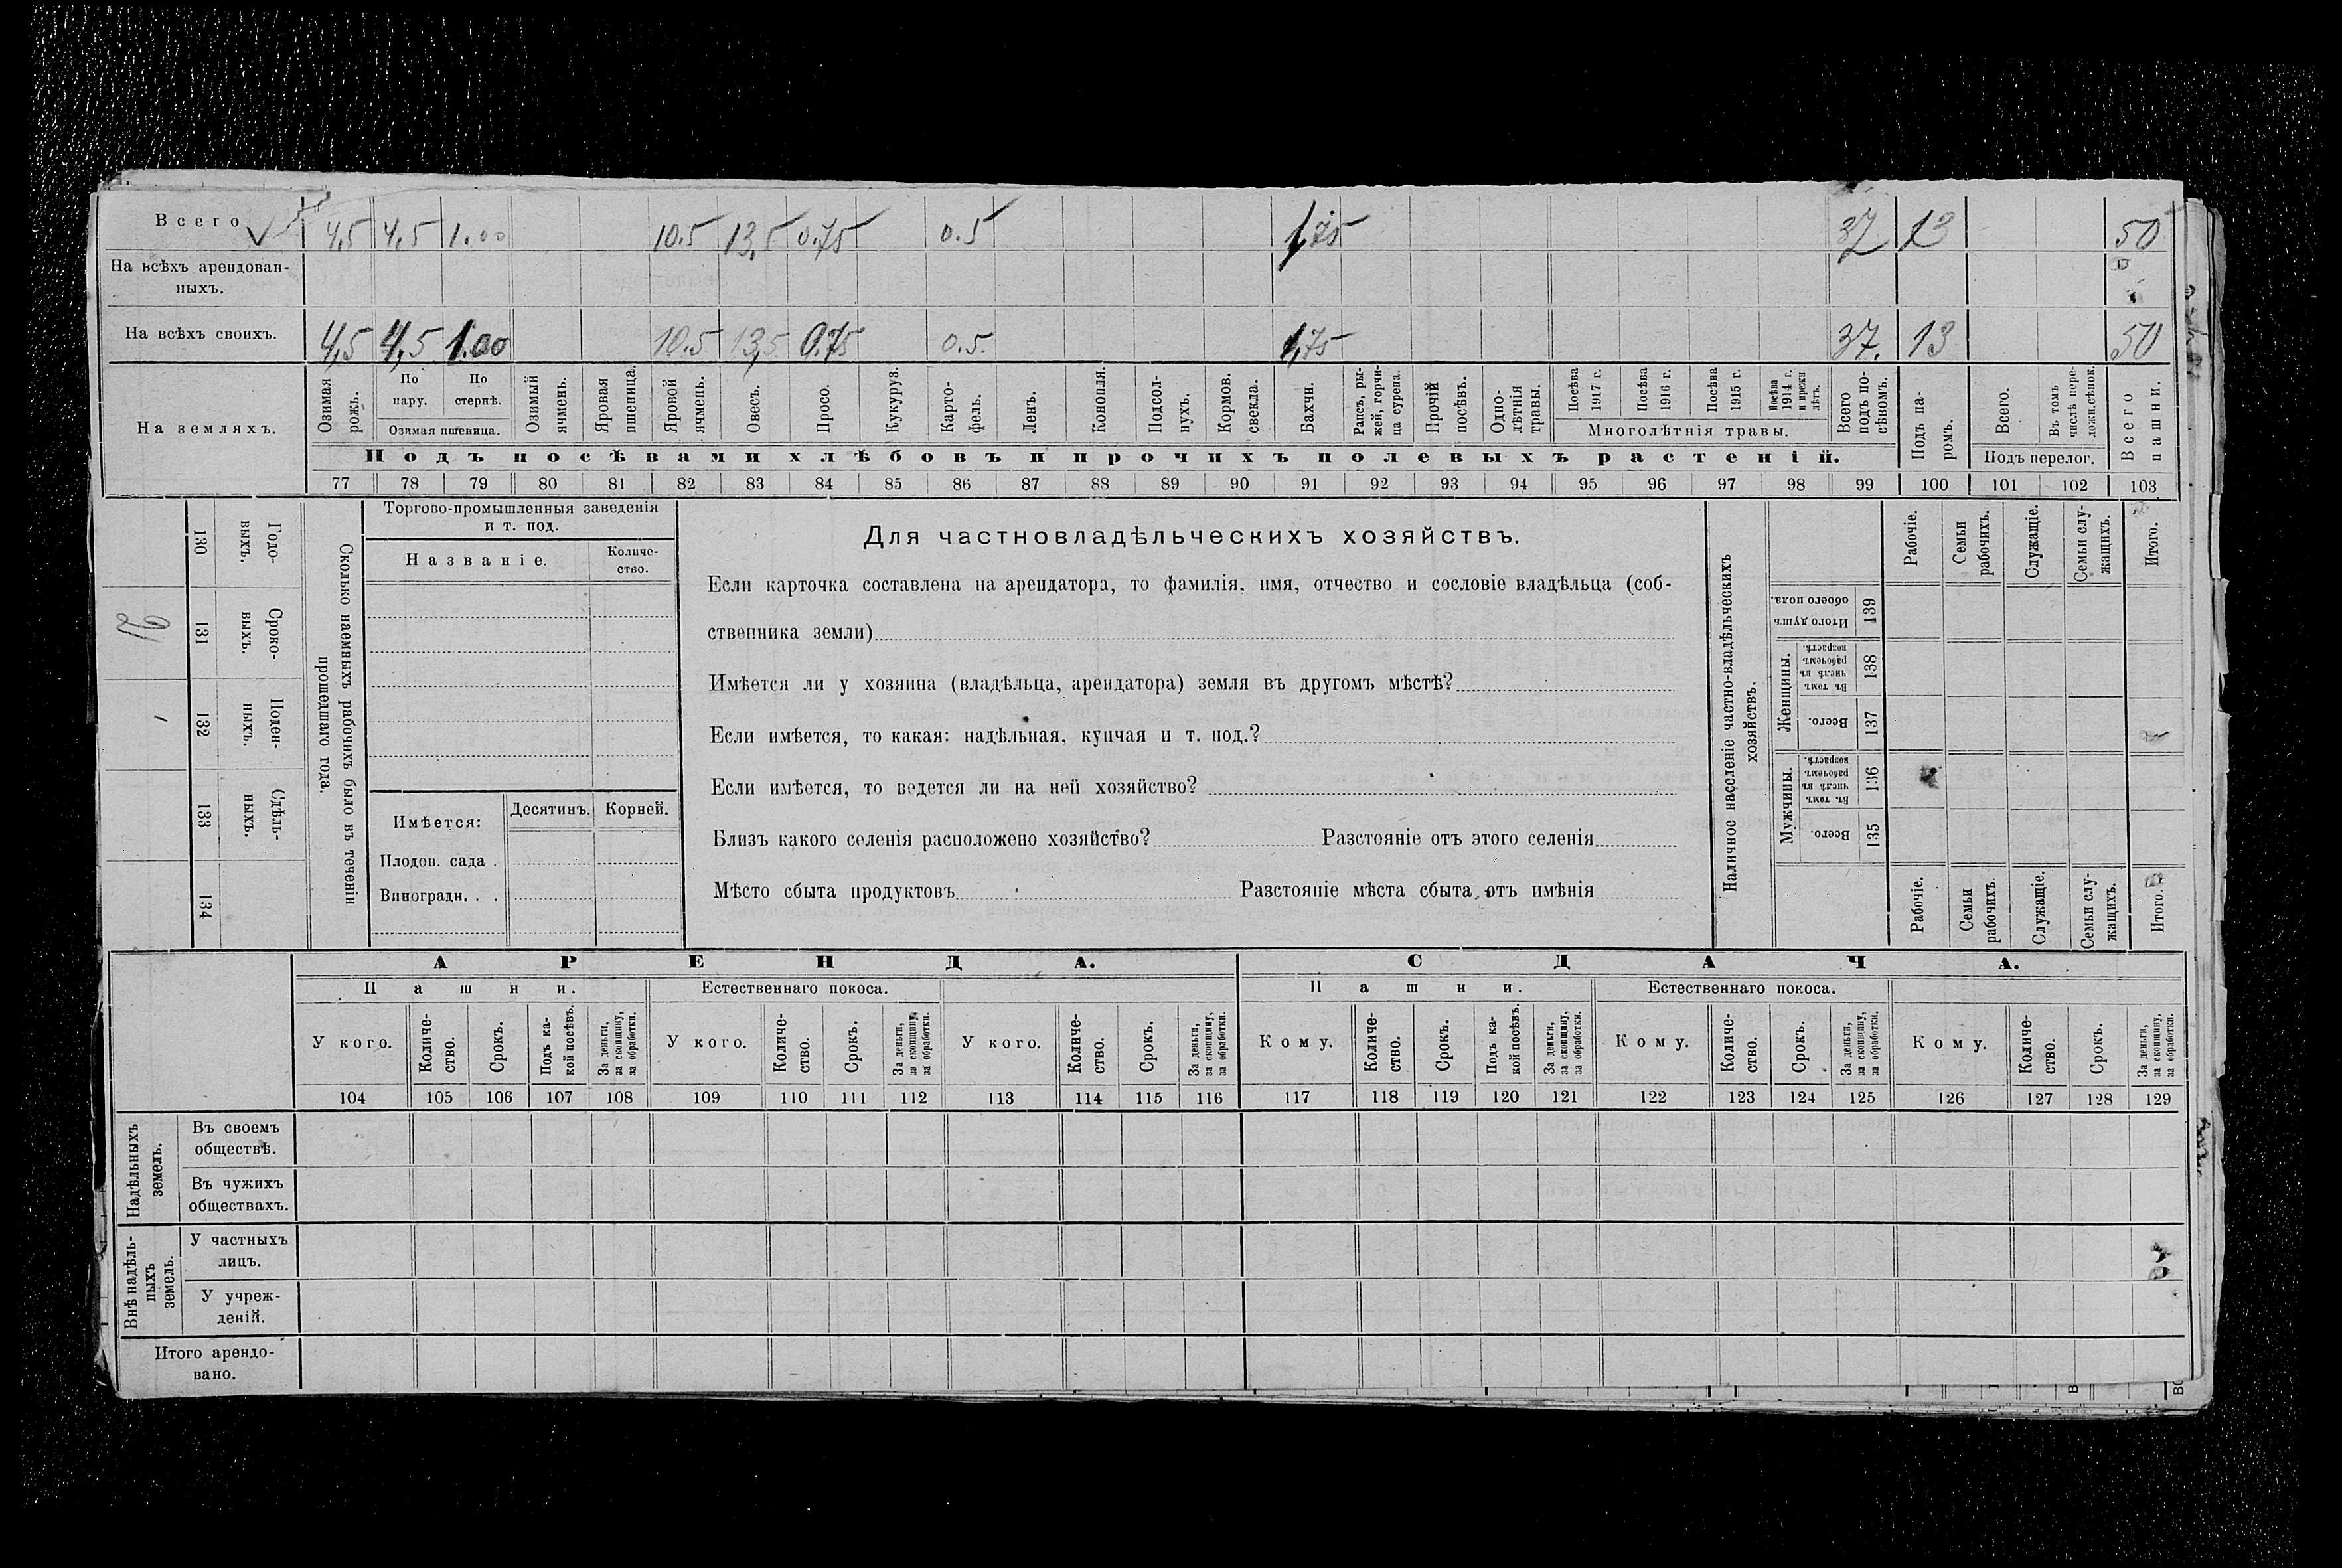 Всего 4,5 4,5 1.00 10.5 13,5 0.75 0.5 1,75 37 13 50
На всѣхъ арендован-
ныхъ.
На всѣхъ своихъ. 4,5 4,5 1.00 10.5 13,5 0.75 0.5. 1,75 37. 13 50
На земляхъ.
Озимая рожь.
По пару.
По стернѣ.
Озимая пшеница.
Озимый ячмень.
Яровая пшеница.
Яровой ячмень.
Овесъ.
Просо.
Кукуруз.
Карто-
фель.
Ленъ.
Конопля.
Подсол-
нухъ.
Кормов. свекла.
Бахчи.
Рапсъ, ры-
жей, горчи-
ца сурепа.
Прочій посѣвъ.
Одно-
лѣтнія травы.
Посѣва 1917 г.
Посѣва 1916 г.
Посѣва 1915 г.
Посѣва 1914 г. и прежн лѣтъ.
Многолѣтнія травы.
Всего подъ по-
сѣвомъ.
Подъ посѣвами хлѣбовъ и прочихъ полевыхъ растеній.
Подъ па-
ромъ.
Всего.
Въ томъ числѣ пере-
ложн.сѣнок.
Подъ перелог.
Всего пашни.
77 78 79 80 81 82 83 84 85 86 87 88 89 90 91 92 93 94 95 96 97 98 99 100 101 102 103
Годо-
выхъ. 130
Сроко-
выхъ. 131
Поден-
ныхъ. 132
Сдѣль-
ныхъ. 133
134
Сколько наемныхъ рабочихъ было въ теченіи
прошедшаго года.
Торгово-промышленныя заведенія
и т. под.
Названіе. Количе-
ство.
Имѣется: Десятинъ. Корней.
Плодов. сада .
Виноградн. . .
Для частновладѣльческихъ хозяйствъ.
Если карточка составлена на арендатора, то фамилія, имя, отчество и сословіе владѣльца (соб-
ственника земли)
Имѣется ли у хозяина (владѣльца, арендатора) земля въ другомъ мѣстѣ?
Если имѣется, то какая: надѣльная, купчая и т. под.?
Если имѣется, то ведется ли на ней хозяйство?
Близъ какого селенія расположено хозяйство? Разстояніе отъ этого селенія
Мѣсто сбыта продуктовъ Разстояніе мѣста сбыта отъ имѣнія
Наличное населеніе частно-владѣльческихъ
хозяйствъ.
Рабочіе.
Семьи рабочихъ.
Служащіе.
Семьи слу-
жащихъ.
Итого.
Итого душъ обоего пола. 139
Женщины.
Въ томъ числѣ въ рабочемъ возрастѣ. 138
Всего. 137
Мужчины.
Въ томъ числѣ въ рабочемъ возрастѣ. 136
Всего. 135
Рабочіе.
Семьи рабочихъ
Служащіе.
Семьи слу-
жащихъ.
Итого.
АРЕНДА. СДАЧА.
Пашни. Естественнаго покоса. Пашни. Естественнаго покоса.
У кого. Количе-
ство. Срокъ. Подъ ка-
кой посѣвъ. За деньги, за скопщину, за обработки.
У кого. Количе-
ство. Срокъ. За деньги, за скопщину, за обработки.
У кого. Количе-
ство. Срокъ. За деньги, за скопщину, за обработки.
Кому. Количе-
ство. Срокъ. Подъ ка-
кой посѣвъ. За деньги, за скопщину, за обработки.
Кому. Количе-
ство. Срокъ. За деньги, за скопщину, за обработки.
Кому. Количе-
ство. Срокъ. За деньги, за скопщину, за обработки.
104 105 106 107 108 109 110 111 112 113 114 115 116 117 118 119 120 121 122 123 124 125 126 127 128 129
Надѣльныхъ земель.
Въ своемъ
обществѣ.
Въ чужихъ
обществахъ.
Внѣ надѣль-
ныхъ земель.
У частныхъ
лицъ.
У учреж-
деній.
Итого арендо-
вано.